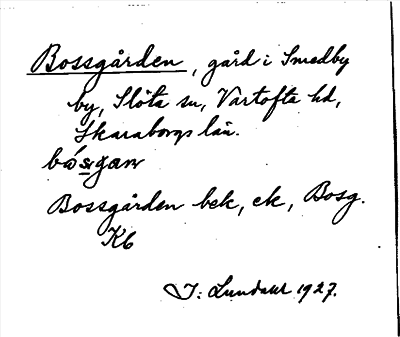 Bossgården, gård i Smedby
by, Slöta sn, Vartofta hd,
Skaraborgs län.
Bossgården bek, ek, Bosg.
Kb
J: Lundahl 1927.